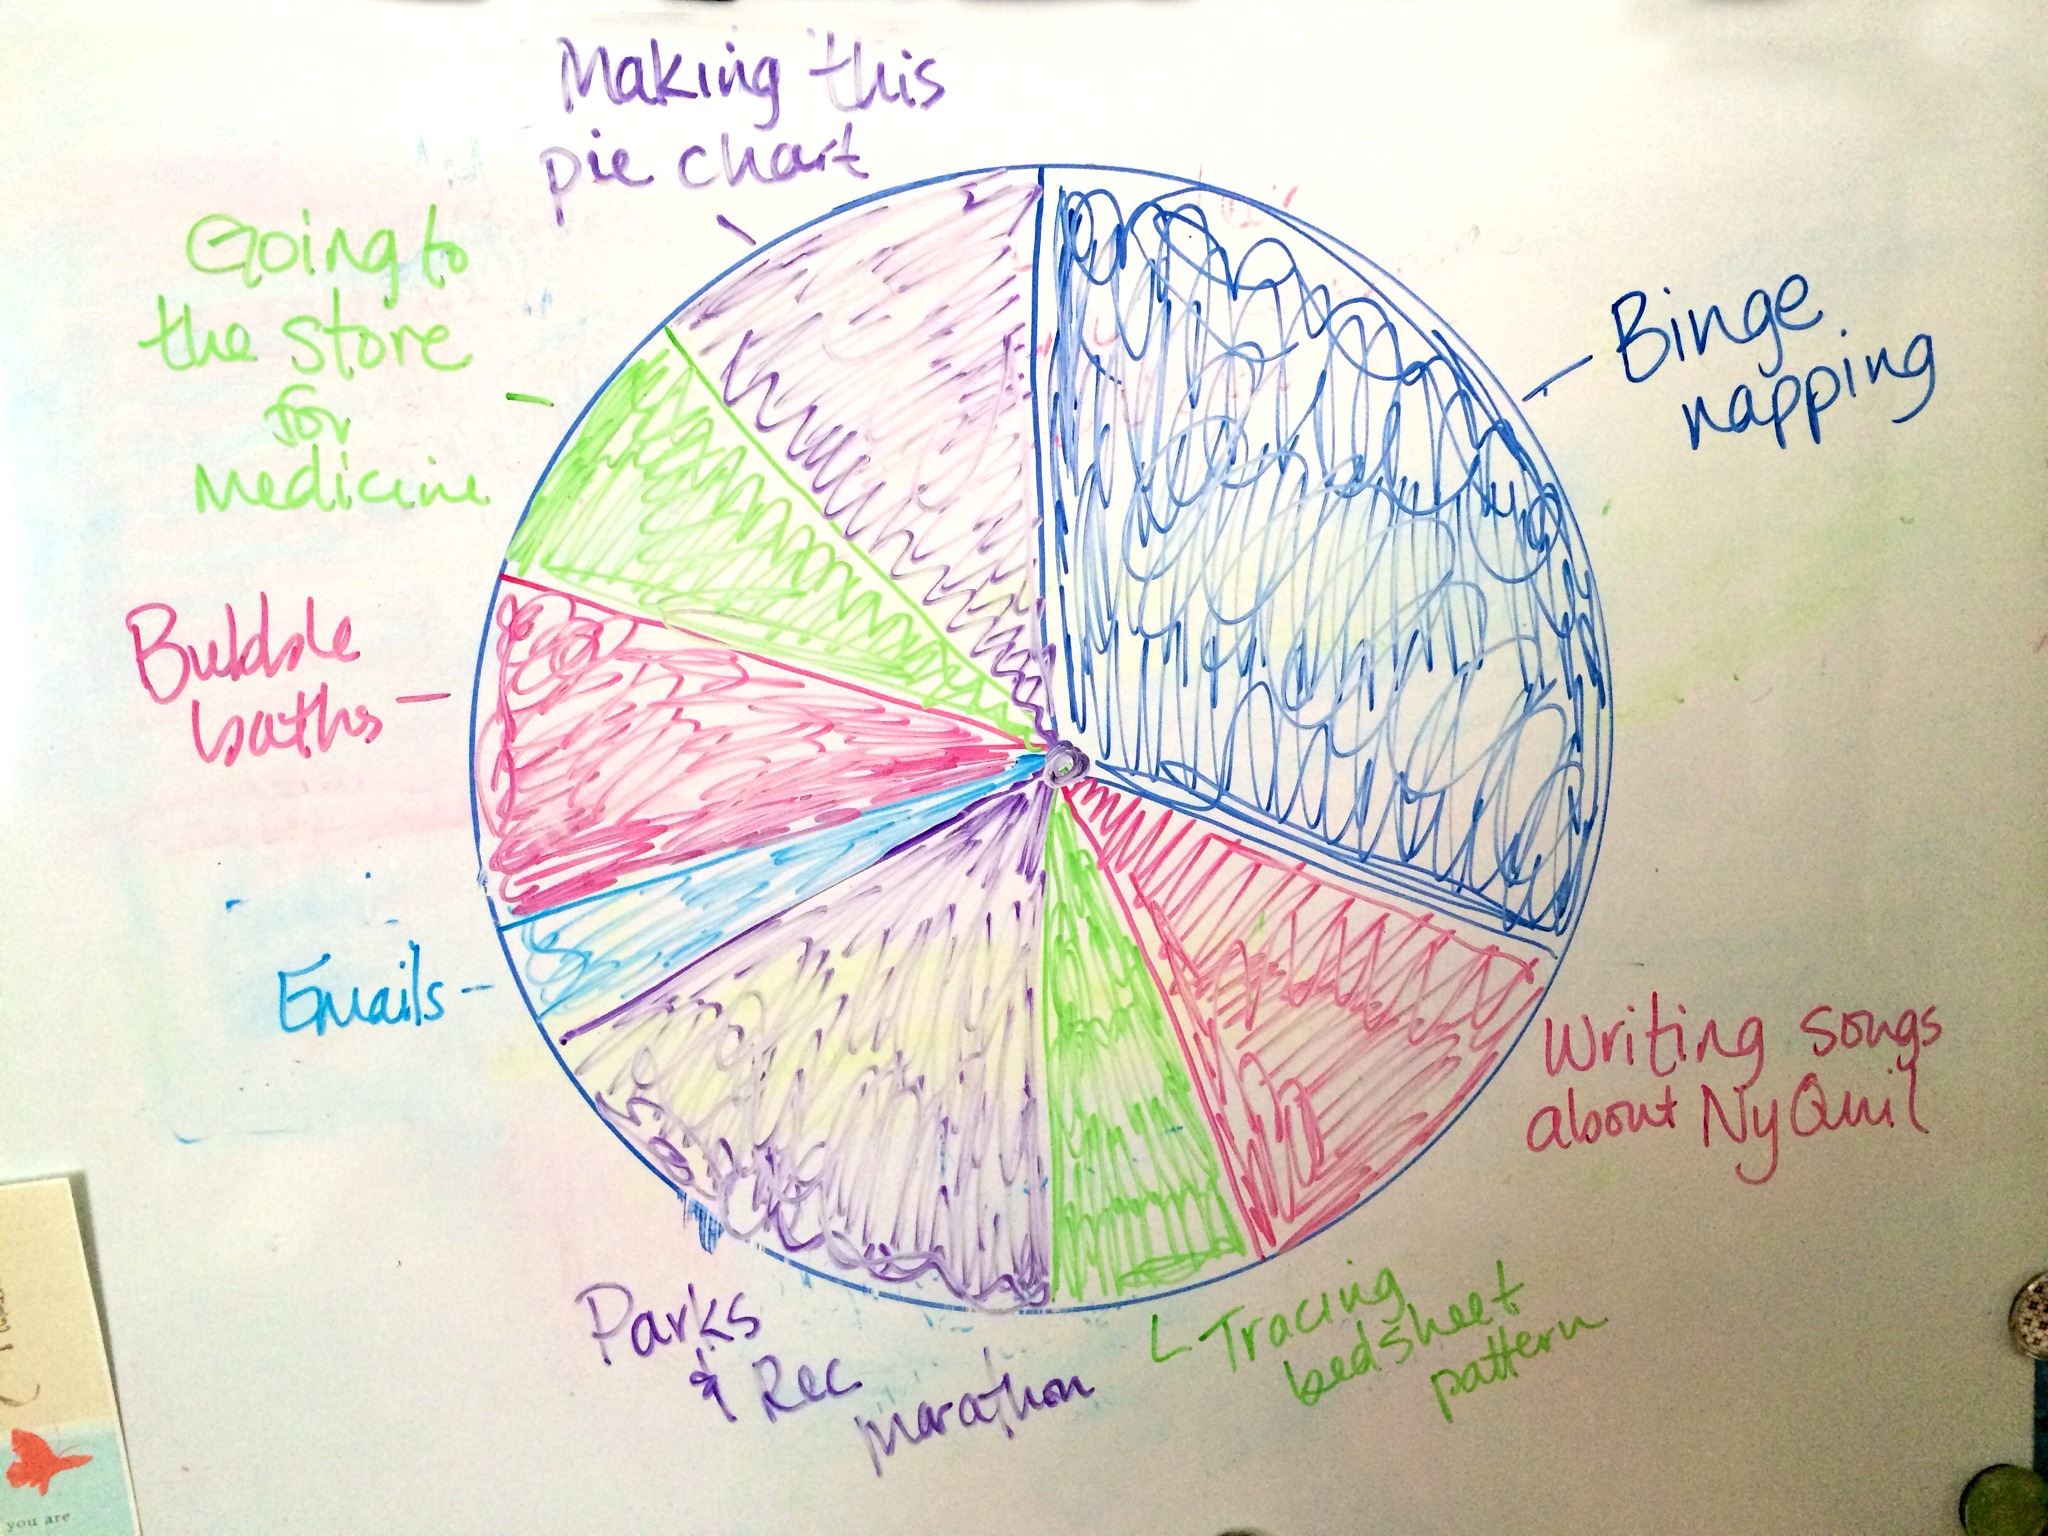 Making this
pie chart
Going to
the store
for
medicine
Binge
napping
Bubble
baths
Emails
Writing songs
about NyQuil
Tracing
bedsheet
pattern
Parks
& Rec
marathon
you are